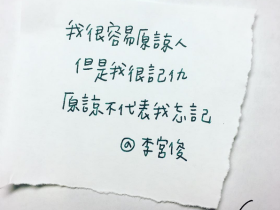 我很容易原諒人
但是我很記仇
原諒不代表我忘記
@李宮俊